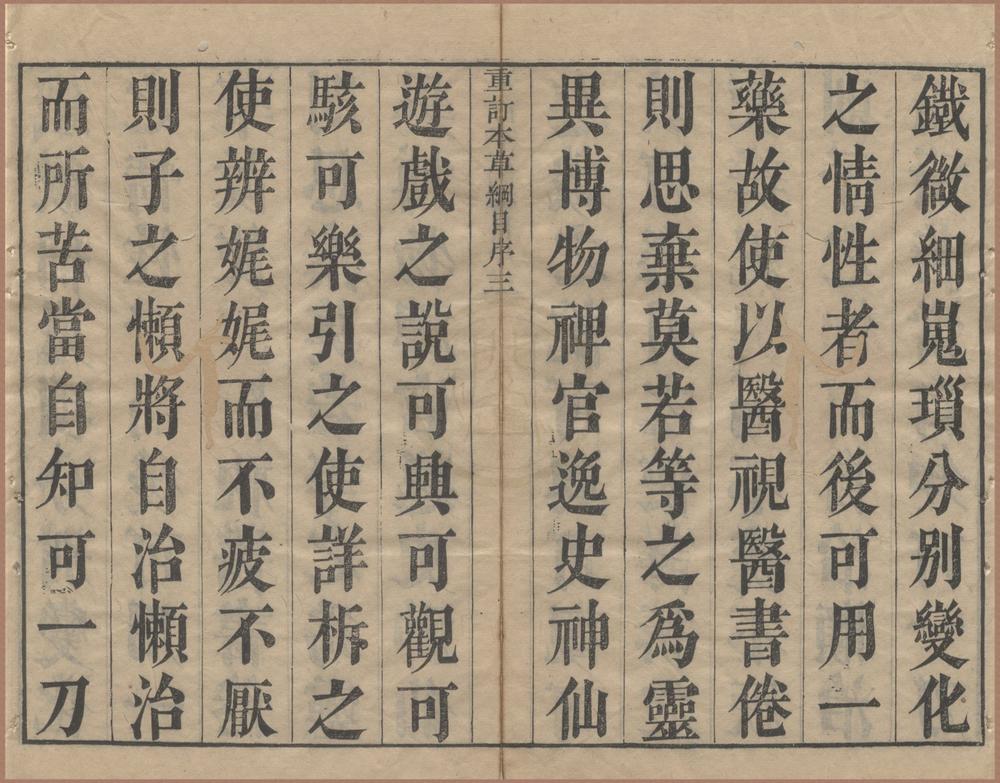 鐵微細嵬瑣分別變化
之情性者而後可用一
藥故使以醫視醫書倦
則思棄莫若等之為靈
異博物稗官逸史神仙
重訂本草綱目序三
遊戲之說可興可觀可
駭可樂引之使詳析之
使辨娓娓而不疲不厭
則子之懶將自治懶治
而所苦當自知可一刀